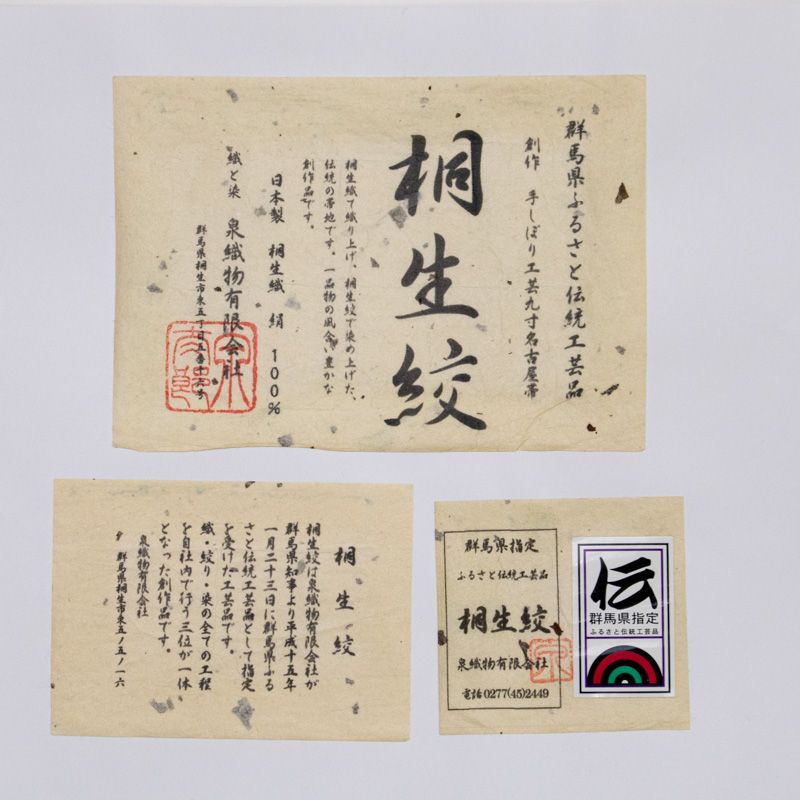 群馬県ふるさと伝統工芸品
創作　手しぼり工芸九寸名古屋帯
桐生絞
桐生織で織り上げ、桐生絞で染め上げた、
伝統の帯地です。一品物の風合い豊かな
創作品です。
日本製　桐生織　絹　100%
織と染　泉織物有限会社
群馬県桐生市東五丁目五番十六号
桐生絞
桐生絞は泉織物有限会社が
群馬県知事より平成十五年
一月二十三日に群馬県ふる
さと伝統工芸品として指定
を受けた工芸品です。
織・絞り・染の全ての工程
を自社内で行う三位が一体
となった創作品です。
泉織物有限会社
群馬県桐生市東五ノ五ノ一六
群馬県指定
ふるさと伝統工芸品
桐生絞
泉織物有限会社
電話0277(45)2449
伝
群馬県指定
ふるさと伝統工芸品